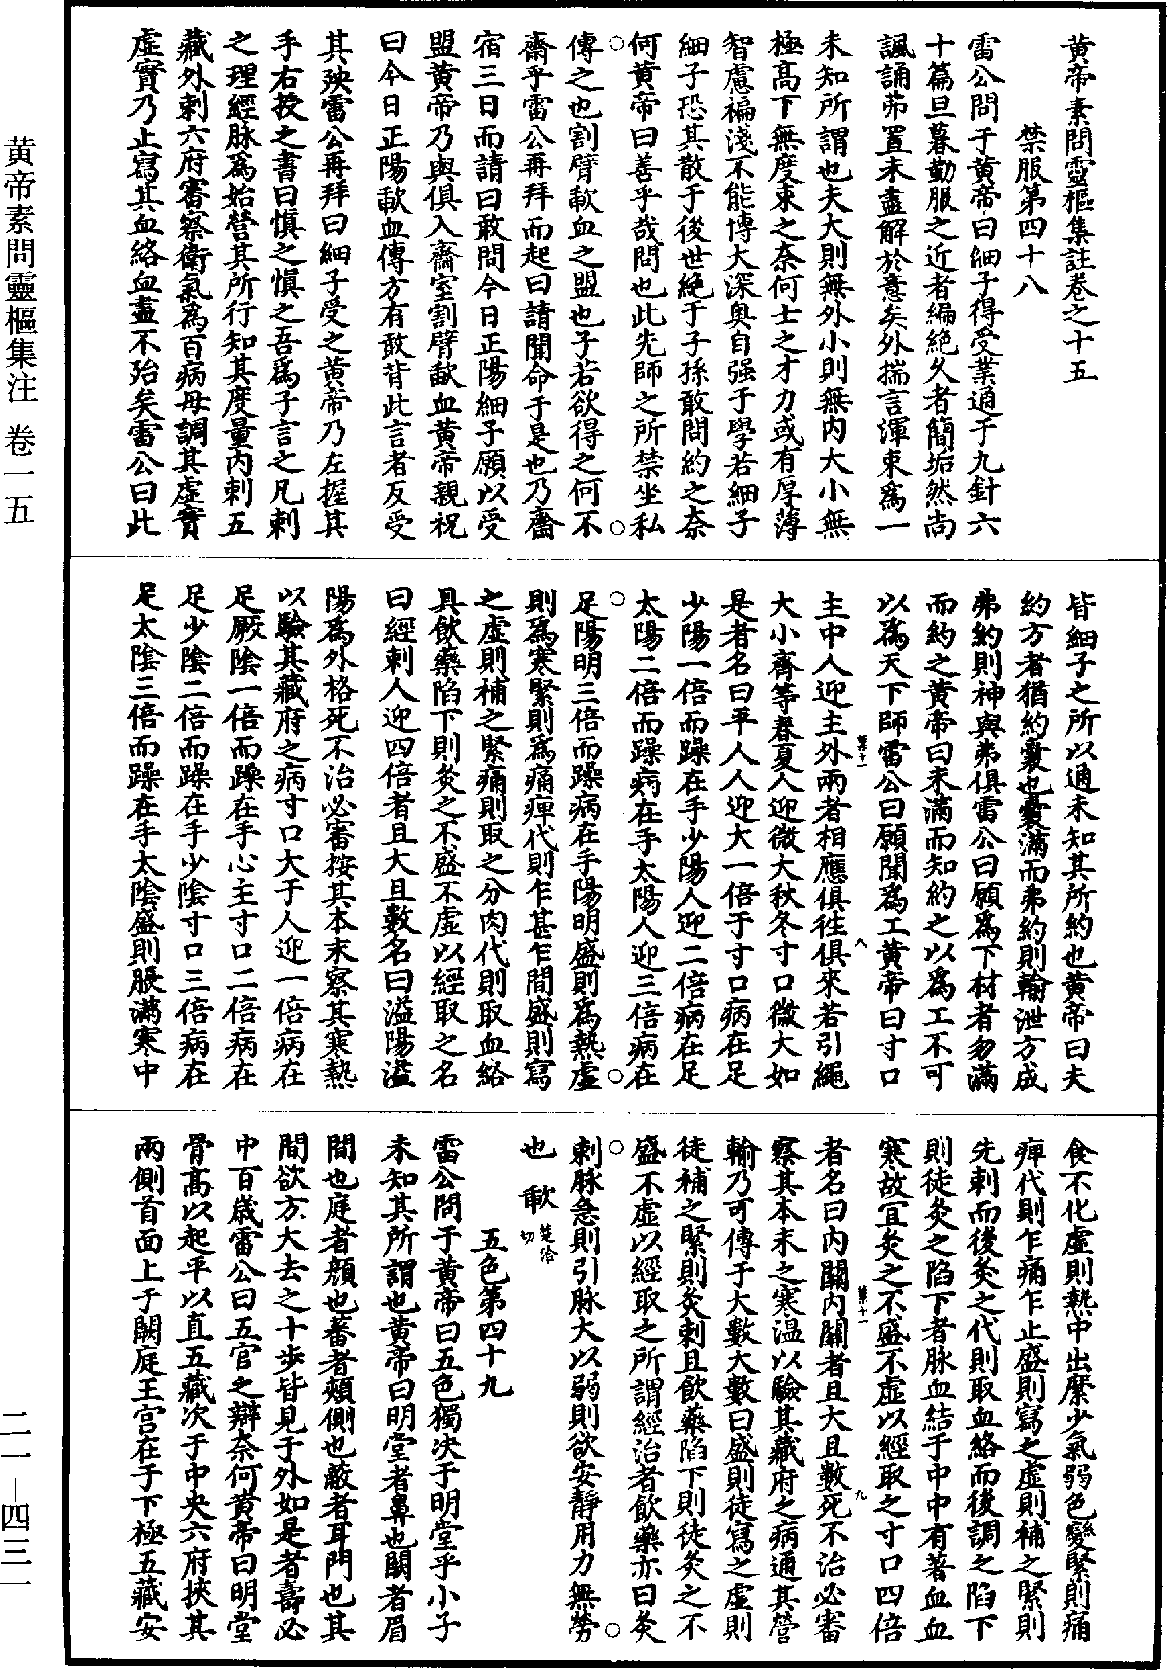 黄帝素問靈樞集註卷之十五
禁服第四十八
雷公問于黄帝曰細子得受業通于九針六
十篇旦暮勤服之近者編絶久者簡垢然尚
諷誦弗置未盡解於意矣外揣言渾束爲一
未知所謂也夫大則無外小則無内大小無
極高下無度束之奈何士之才力或有厚薄
智慮褊淺不能博大深奥自强于學若細子
細子恐其散于後世絶于子孫敢問約之奈
何黄帝曰善乎哉問也此先師之所禁坐私
傳之也割臂歃血之盟也子若欲得之何不
齋乎雷公再拜而起曰請聞命于是也乃齋
宿三日而請曰敢問今日正陽細子願以受
盟黄帝乃與俱入齋室割臂歃血黄帝親祝
曰今日正陽歃血傳方有敢背此言者反受
其殃雷公再拜曰細子受之黄帝乃左握其
手右授之書曰慎之慎之吾爲子言之凡刺
之理經脉爲始營其所行知其度量内刺五
藏外刺六府審察衛氣爲百病母調其虚實
虚實乃止寫其血絡血盡不殆矣雷公曰此
皆細子之所以通未知其所約也黄帝曰夫
約方者猶約囊也囊滿而弗約則輸泄方成
弗約則神與弗俱雷公曰願爲下材者勿滿
而約之黄帝曰未滿而知約之以爲工不可
以爲天下師雷公曰願聞爲工黄帝曰寸口
主中人迎主外兩者相應俱往俱來若引繩
大小齊等春夏人迎微大秋冬寸口微大如
是者名曰平人人迎大一倍于寸口病在足
少陽一倍而躁在手少陽人迎二倍病在足
太陽二倍而躁病在手太陽人迎三倍病在
足陽明三倍而躁病在手陽明盛則爲熱虚
則爲寒緊則爲痛痺代則乍甚乍間盛則寫
之虚則補之緊痛則取之分肉代則取血絡
具飲藥陷下則灸之不盛不虚以經取之名
曰經刺人迎四倍者且大且數名曰溢陽溢
陽爲外格死不治必審按其本末察其寒熱
以驗其藏府之病寸口大于人迎一倍病在
足厥陰一倍而躁在手心主寸口二倍病在
足少陰二倍而躁在手少陰寸口三倍病在
足太陰三倍而躁在手太陰盛則脹滿寒中
食不化虚則熱中出縻少氣弱色變緊則痛
痺代則乍痛乍止盛則寫之虚則補之緊則
先刺而後灸之代則取血絡而後調之陷下
則徒灸之陷下者脉血結于中中有著血血
寒故宜灸之不盛不虚以經取之寸口四倍
者名曰内關内關者且大且數死不治必審
察其本末之寒温以驗其藏府之病通其營
輸乃可傳于大數大數曰盛則徒寫之虚則
徒補之緊則灸刺且飲藥陷下則徒灸之不
盛不虚以經取之所謂經治者飲藥亦曰灸
刺脉急則引脉大以弱則欲安靜用力無勞
也 歃楚洽切
五色第四十九
雷公問于黄帝曰五色獨决于明堂乎小子
未知其所謂也黄帝曰明堂者鼻也闕者眉
間也庭者顔也蕃者頰側也蔽者耳門也其
間欲方大去之十步皆見于外如是者壽必
中百歳雷公曰五官之辯奈何黄帝曰明堂
骨高以起平以直五藏次于中央六府挾其
兩側首面上于闕庭王宫在于下極五藏安
黄帝素問靈樞集注 卷一五
二一—四三一